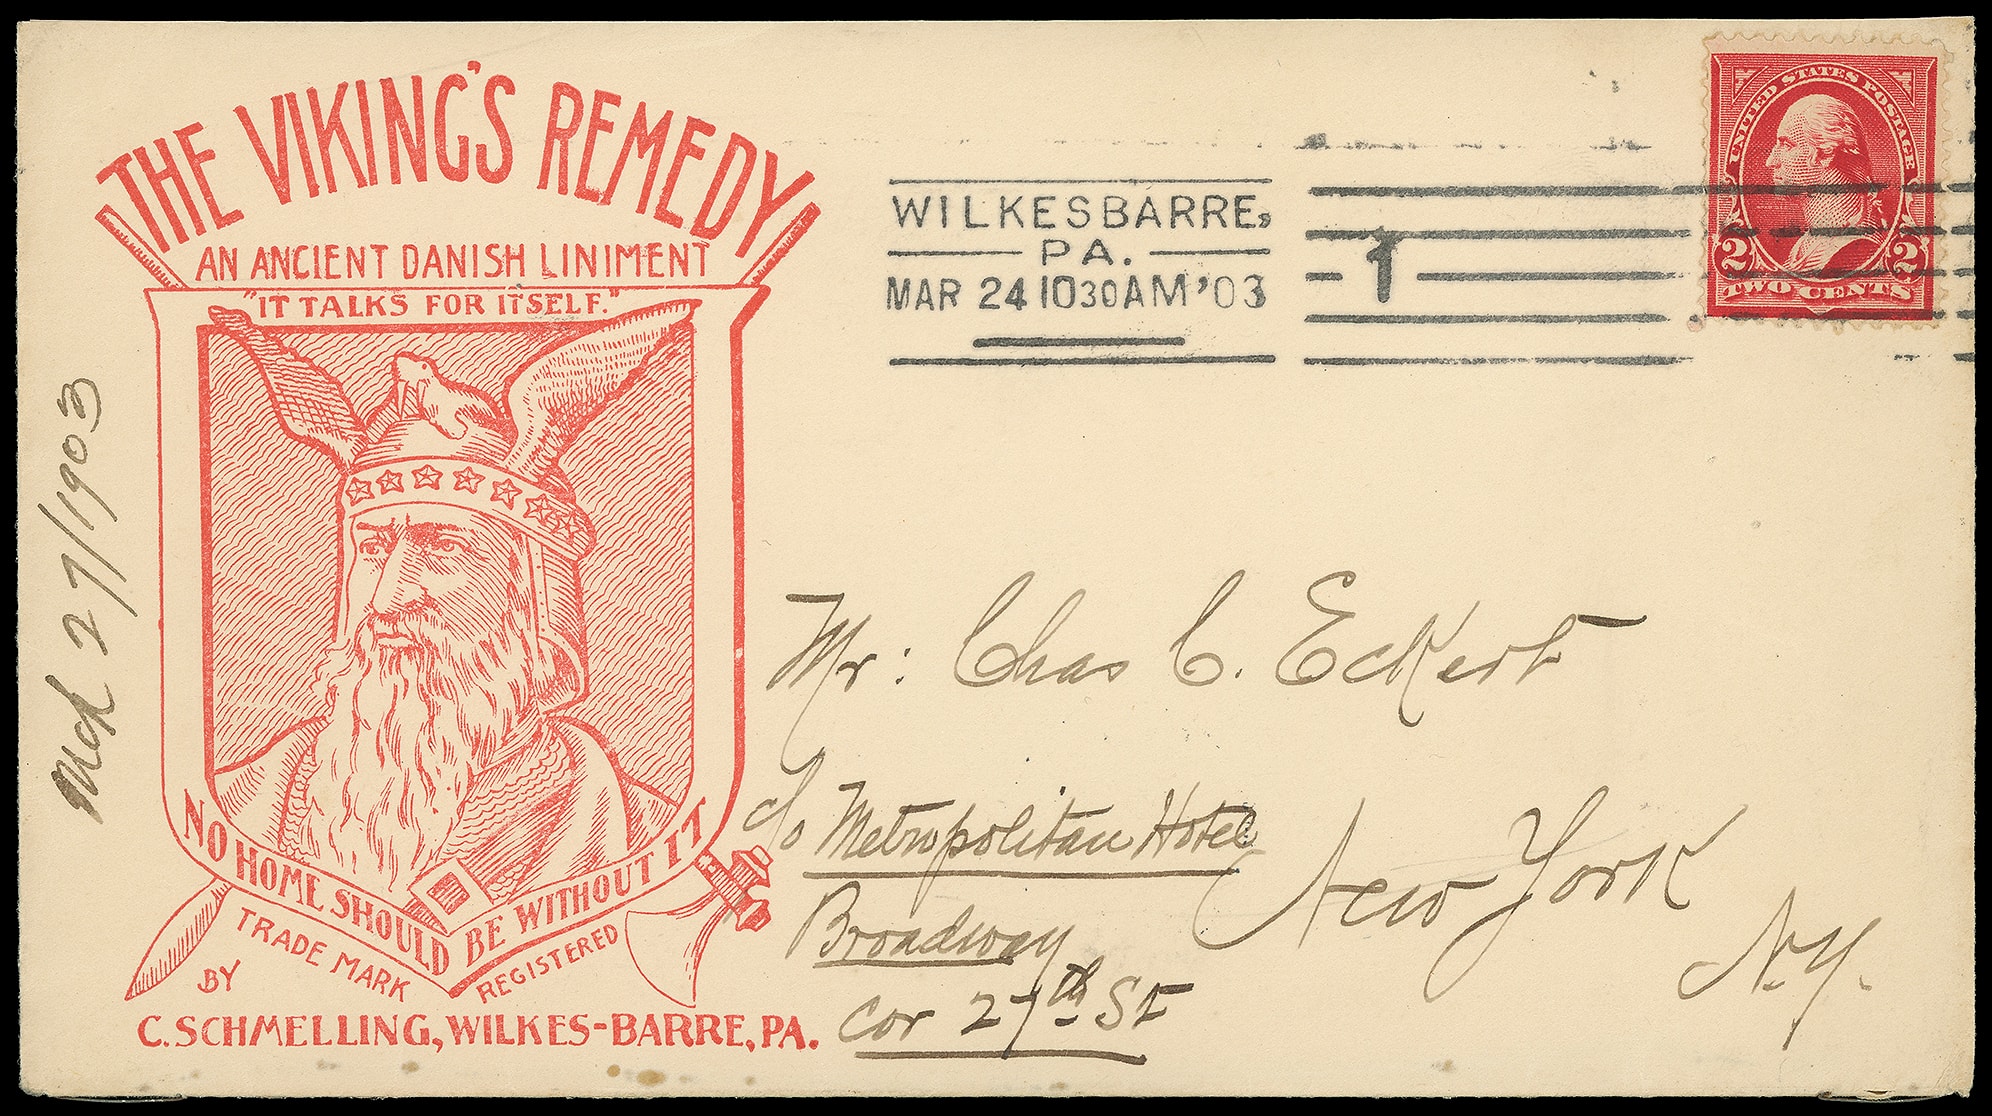 THE VIKING'S REMEDY
AN ANCIENT DANISH LINIMENT
"IT TALKS FOR ITSELF."
NO HOME SHOULD BE WITHOUT IT
TRADE MARK REGISTERED
BY
C. SCHMELLING, WILKES-BARRE, PA.
Mch 27/1903
WILKESBARRE,
PA.
MAR 24 1030AM '03
1
UNITED STATES POSTAGE
2 2
TWO CENTS
Mr: Chas C. Eckert
c/o Metropolitan Hotel
Broadway
cor 27th St
New York
N.Y.